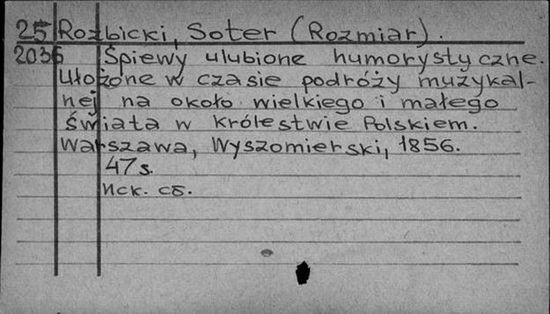 25 Rozbicki, Soter (Rozmiar).
2036 Śpiewy ulubione humorystyczne.
Ułożone w czasie podróży muzykal-
nej na około wielkiego i małego
świata w Królestwie Polskiem.
Warszawa, Wyszomierski, 1856.
47 s.
Иск. сб.